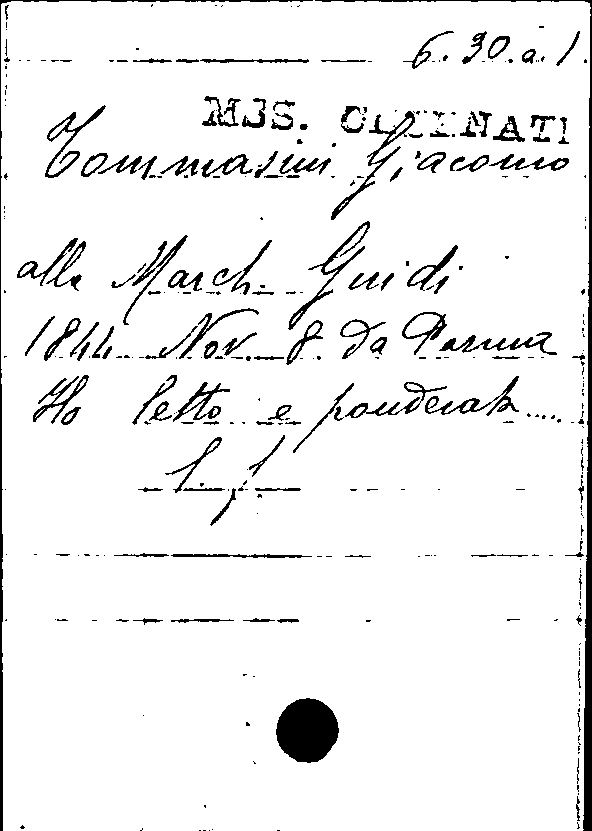 6.30.a.1
MSS. CECINATI
Tommasini Giacomo
alla March. Guidi
1844 Nov. 8. da Parma
Ho letto e ponderato ....
l. f.